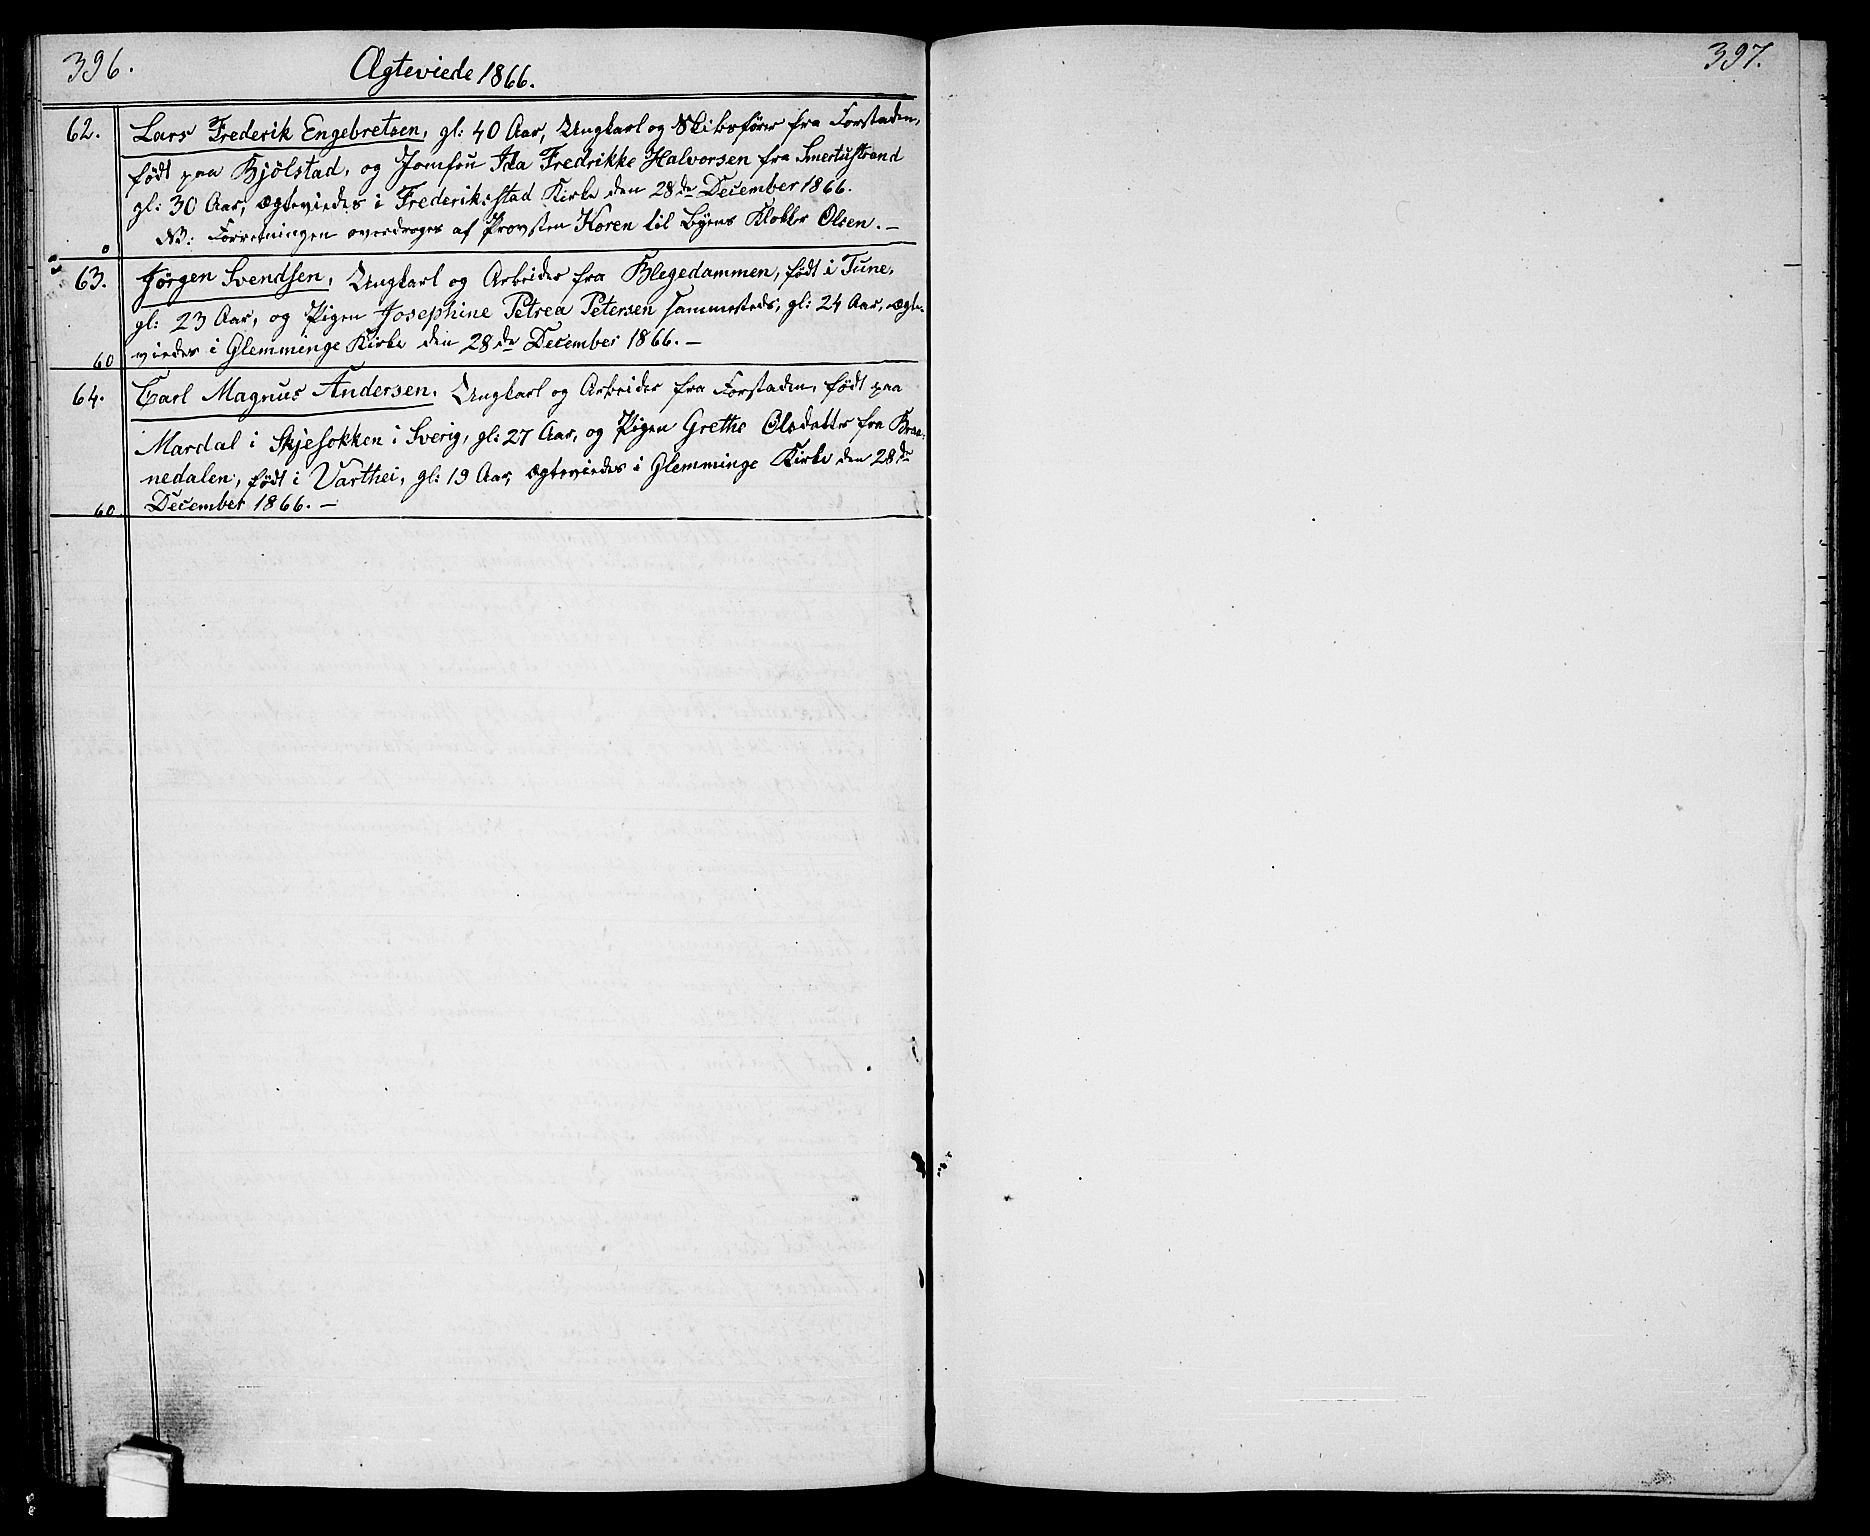 396.
Ægteviede 1866.
397.
62. Lars Frederik Engebretsen, gl: 40 Aar, Ungkarl og Skibsfører fra Forstaden,
født paa Kjölstad, og Jomfru Ida Fredrikke Halvorsen fra Smertustrand
gl: 30 Aar, ægteviedes i Frederiksstad Kirke den 28de December 1866.
NB: Forretningen overdroges af Provsten Koren til Byens Klokker Olsen. –
0
63. Jørgen Svendsen, Ungkarl og Arbeider fra Blegedammen, født i Tune,
gl: 23 Aar, og Pigen Josephine Petrea Petersen sammesteds, gl: 24 Aar, ægte-
60 viedes i Glemminge Kirke den 28de December 1866. –
64. Carl Magnus Andersen, Ungkarl og Arbeider fra Forstaden, født paa
Mardal i Skjesokken i Sverig, gl: 27 Aar, og Pigen Grethe Olsdatter fra Kraa-
nedalen, født i Varthei, gl: 19 Aar, ægteviedes i Glemminge Kirke den 28de
60 December 1866. –